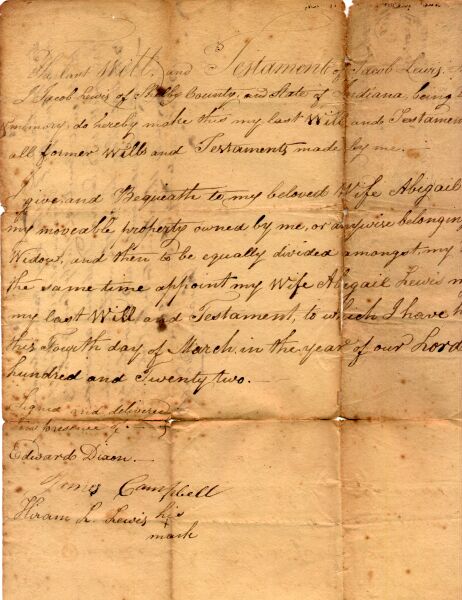 The last Will and Testament of Jacob Lewis.
I Jacob Lewis of Shelby County, and State of Indiana, being
memory, do hereby make this my last Will and Testamen
all former Wills and Testaments made by me.
I give and Bequeath to my beloved Wife Abigail
my moveable property owned by me, or anywise belonging
Widow, and then to be equally divided amongst my
the same time appoint my Wife Abegail Lewis
my last Will and Testament, to which I have h
this Fourth day of March in the year of our Lord
hundred and Twenty two.
Signed and delivered
in presence of
Edward Dixon
James Campbell
Hiram L. Lewis his
mark